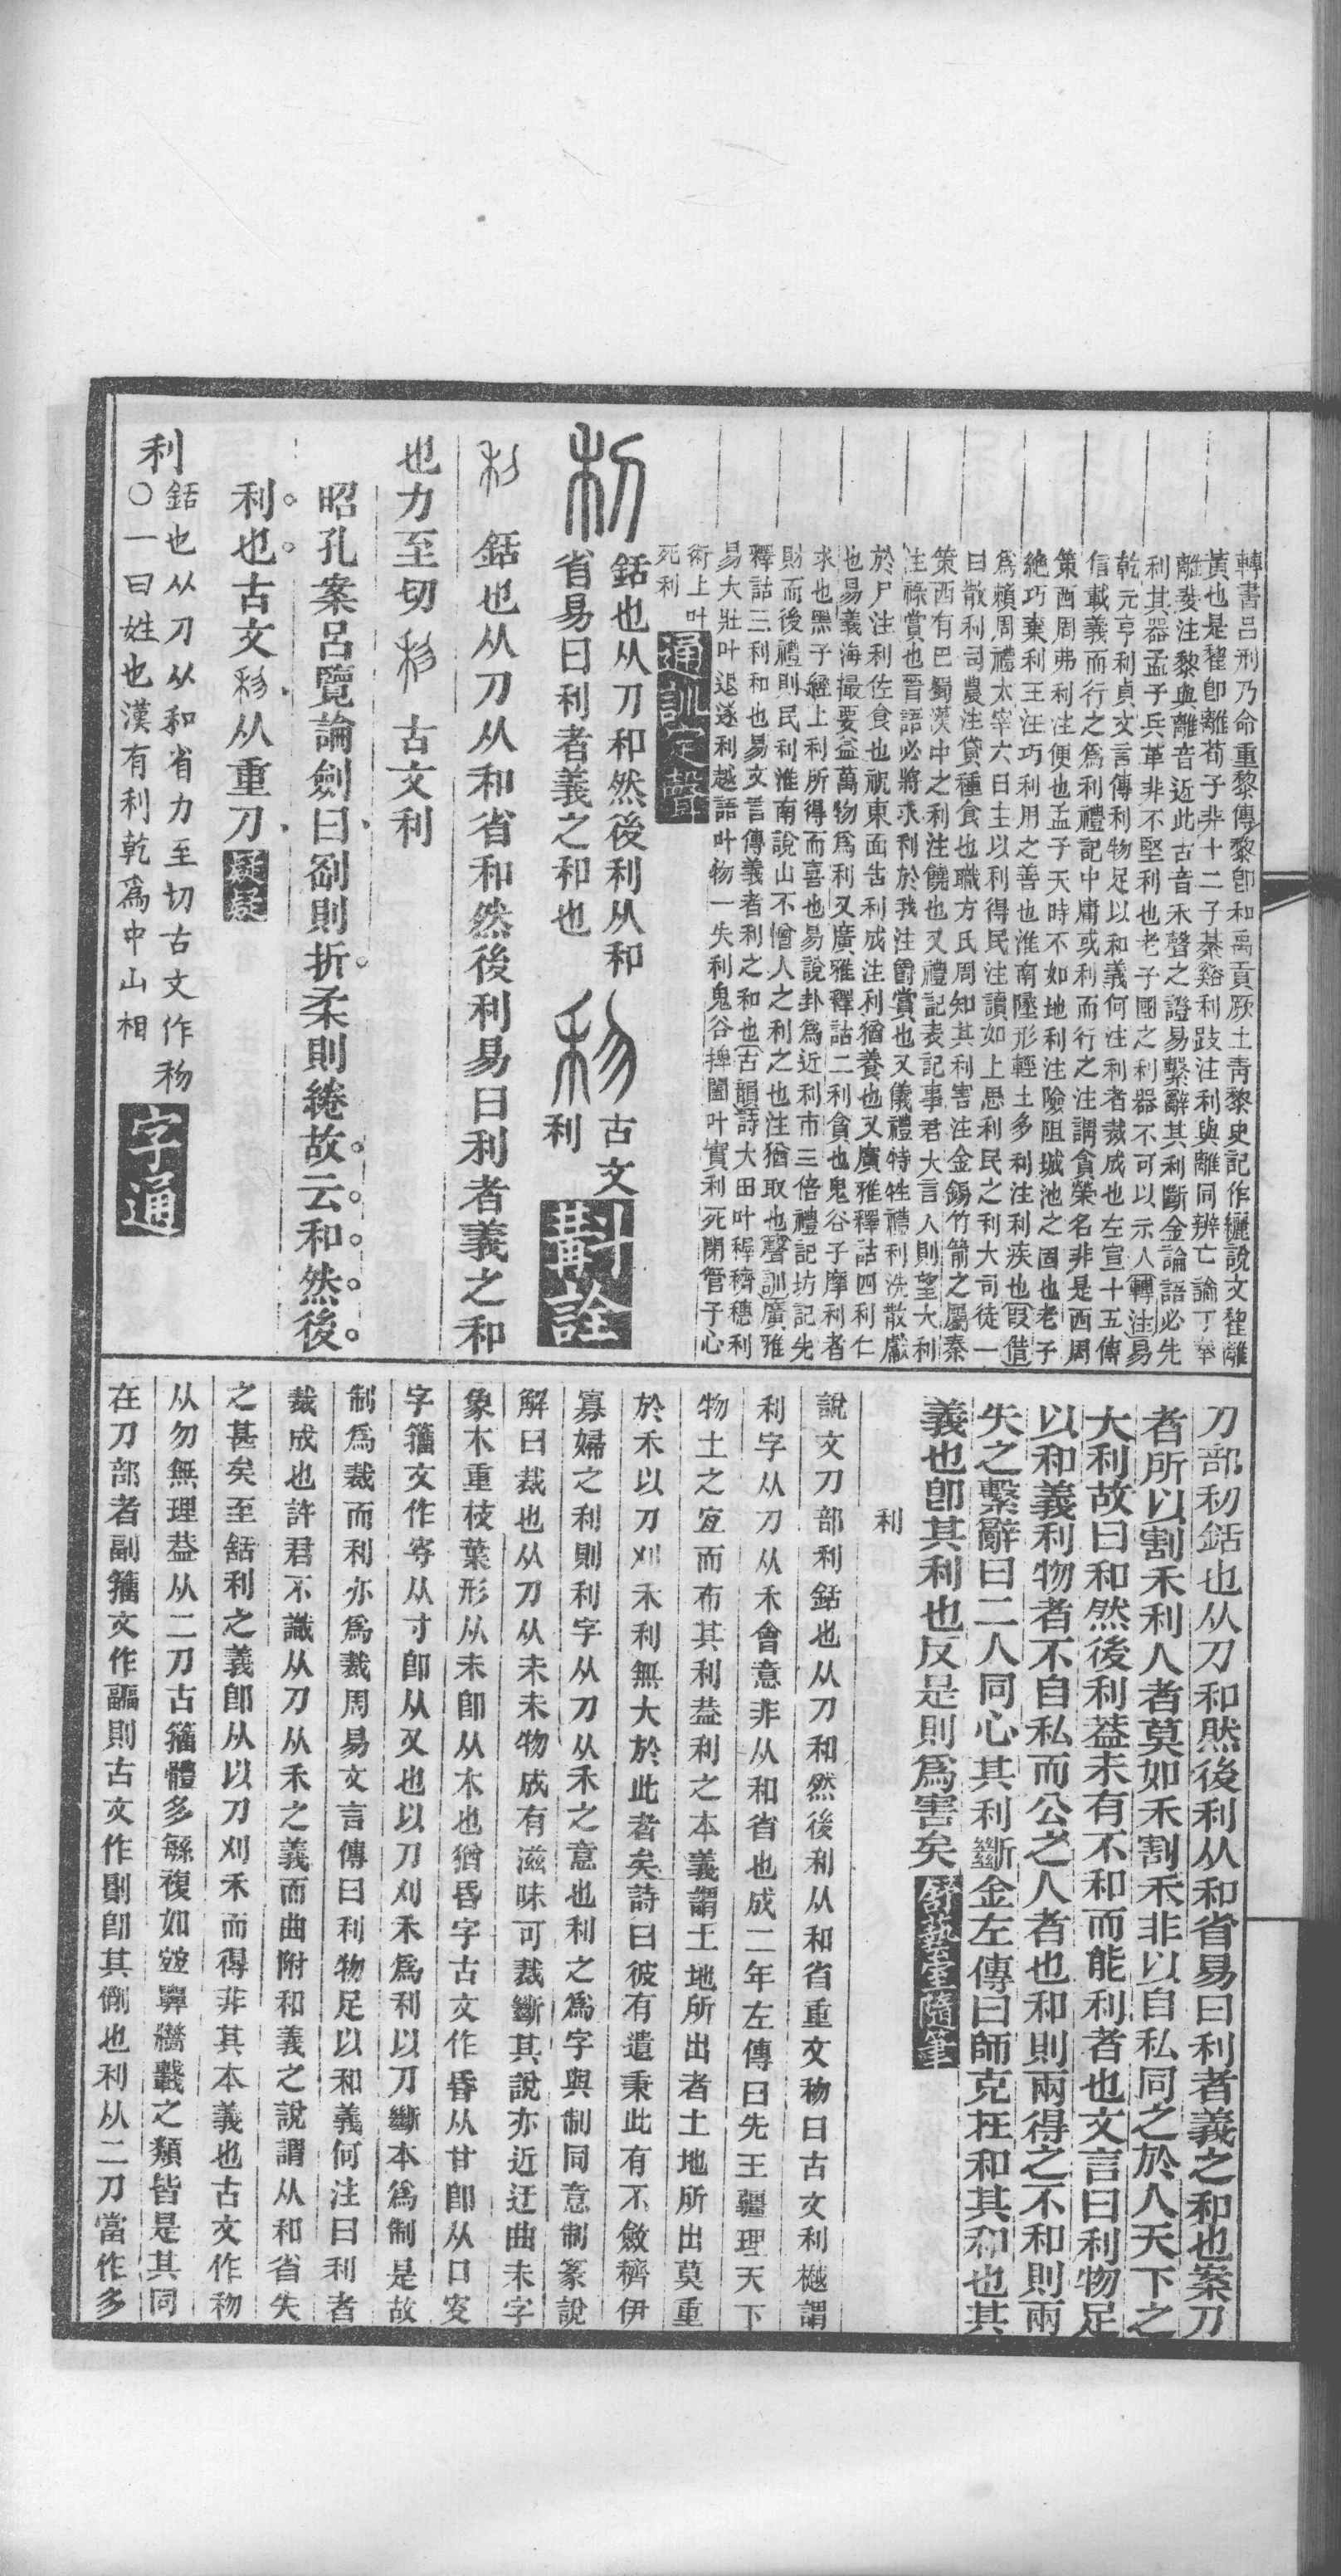 轉書呂刑乃命重黎傳黎卽和禹貢厥土青黎史記作驪說文犂離
黃也是犂卽離荀子非十二子綦谿利跂注利與離同辨亡論丁奉
離斐注黎與離音近此古音禾聲之證易繫辭其利斷金論語必先
利其器孟子兵革非不堅利也老子國之利器不可以示人轉注易
乾元亨利貞文言傳利物足以和義何注利者裁成也左宣十五傳
信載義而行之爲利禮記中庸或利而行之注謂貪榮名非是西周
策西周弗利注便也孟子天時不如地利注險阻城池之固也老子
絶巧棄利王注巧利用之善也淮南墬形輕土多利注利疾也假借
爲賴周禮太宰六曰主以利得民注讀如上思利民之利大司徒一
曰散利司農注貸種食也職方氏周知其利害注金錫竹箭之屬秦
策西有巴蜀漢中之利注饒也又禮記表記事君大言入則望大利
注祿賞也晉語必將求利於我注爵賞也又儀禮特牲禮利洗散獻
於尸注利佐食也祝東面告利成注利猶養也又廣雅釋詁四利仁
也易義海撮要益萬物爲利又廣雅釋詁二利貪也鬼谷子摩利者
求也墨子經上利所得而喜也易說卦爲近利市三倍禮記坊記先
財而後禮則民利淮南說山不憎人之利之也注猶取也聲訓廣雅
釋詁三利和也易文言傳義者利之和也古韻詩大田叶穉穧穗利
易大壯叶退遂利越語叶物一失利鬼谷捭闔叶實利死閉管子心
術上叶死利
通訓定聲
利 銛也从刀和然後利从和
省易曰利者義之和也 𥝢 古文利
斠詮
利 銛也从刀从和省和然後利易曰利者義之和
也力至切 𥝢 古文利
昭孔案呂覽論劍曰劒則折柔則綣故云和然後
利也古文𥝢从重刀 疑疑
利 銛也从刀从和省力至切古文作𥝢
○一曰姓也漢有利乾爲中山相 字通
刀部利銛也从刀和然後利从和省易曰利者義之和也案刀
者所以割禾利人者莫如禾割禾非以自私同之於人天下之
大利故曰和然後利葢未有不和而能利者也文言曰利物足
以和義利物者不自私而公之人者也和則兩得之不和則兩
失之繫辭曰二人同心其利斷金左傳曰師克在和其和也其
義也卽其利也反是則爲害矣 舒藝室隨筆
利
說文刀部利銛也从刀和然後利从和省重文𥝢曰古文利樾謂
利字从刀从禾會意非从和省也成二年左傳曰先王疆理天下
物土之宜而布其利葢利之本義謂土地所出者土地所出莫重
於禾以刀刈禾利無大於此者矣詩曰彼有遺秉此有不斂穧伊
寡婦之利則利字从刀从禾之意也利之爲字與制同意制篆說
解曰裁也从刀从未未物成有滋味可裁斷其說亦近迂曲未字
象木重枝葉形从未卽从木也猶昏字古文作𠯑从甘卽从口𡬶
字籒文作𡬶从寸卽从又也以刀刈禾爲利以刀斷木爲制是故
制爲裁而利亦爲裁周易文言傳曰利物足以和義何注曰利者
裁成也許君不識从刀从禾之義而曲附和義之說謂从和省失
之甚矣至銛利之義卽从以刀刈禾而得非其本義也古文作𥝢
从勿無理葢从二刀古籒體多緐複如 之類皆是其同
在刀部者副籒文作疈則古文作 卽其例也利从二刀當作多